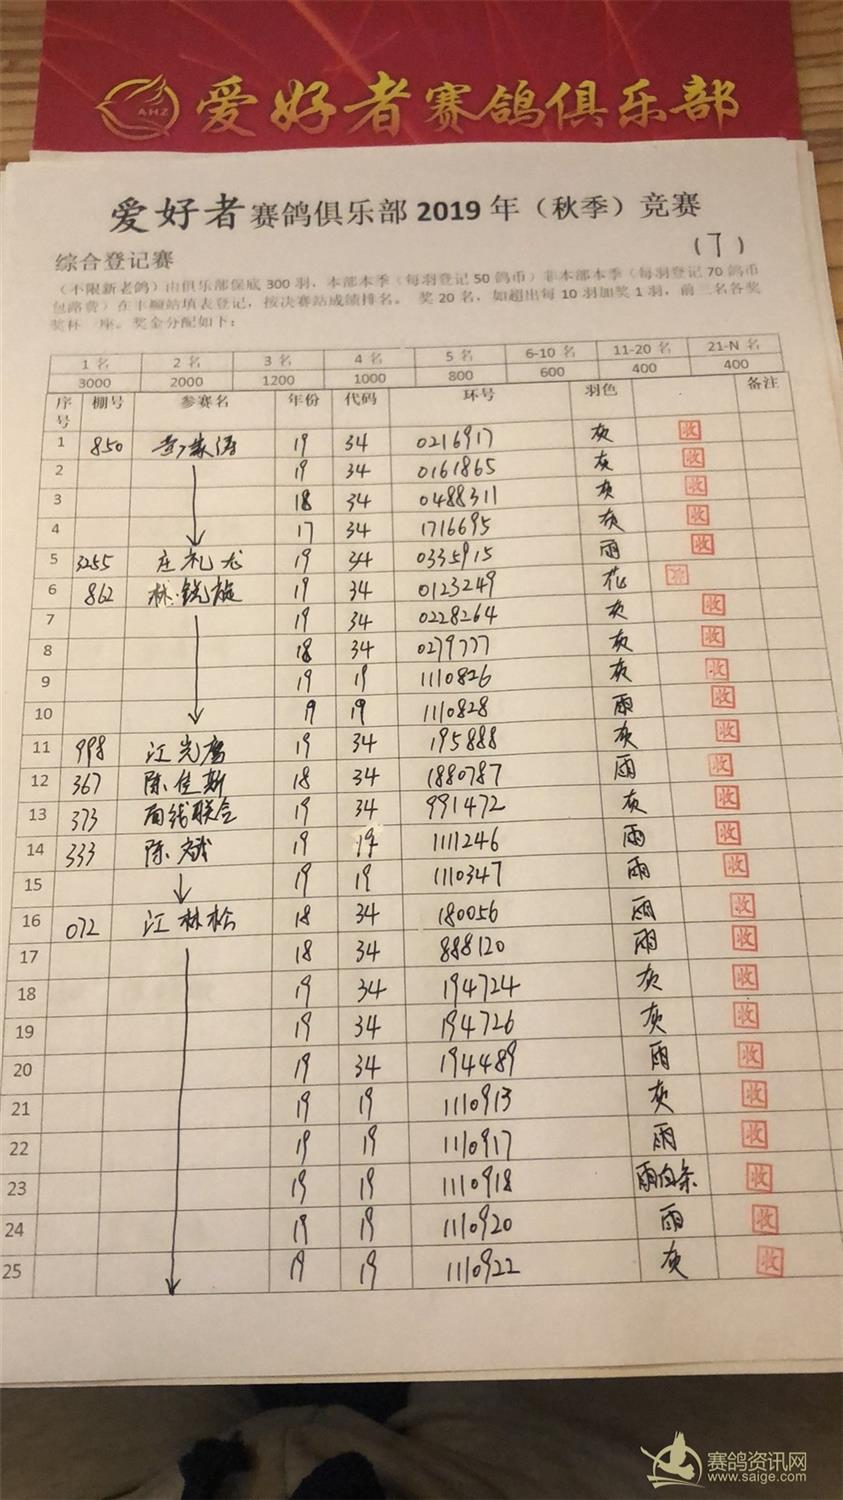 AHZ 爱好者赛鸽俱乐部
爱好者赛鸽俱乐部2019年（秋季）竞赛
(7)
综合登记赛
（不限新老鸽）由俱乐部保底300羽，本部本季（每羽登记50鸽币）非本部本季（每羽登记70鸽币
包路费）在丰顺站填表登记，按决赛站成绩排名。 奖20名，如超出每10羽加奖1羽，前三名各奖
奖杯一座。奖金分配如下：
1名 2名 3名 4名 5名 6-10名 11-20名 21-N名
3000 2000 1200 1000 800 600 400 400
序号 棚号 参赛名 年份 代码 环号 羽色 备注
1 850 19 34 0216917 灰 收
2 19 34 0161865 灰 收
3 18 34 0488311 灰 收
4 17 34 1716695 灰 收
5 3255 庄礼龙 19 34 0335915 雨 收
6 862 林锐旋 19 34 0123249 花
7 19 34 0228264 灰 收
8 18 34 0279777 灰 收
9 19 19 1110826 灰 收
10 19 19 1110828 雨 收
11 998 江光 19 34 195888 灰 收
12 367 陈佳斯 18 34 1880787 雨 收
13 373 面线联合 19 34 991472 灰 收
14 333 陈斌 19 19 1111246 雨 收
15 19 19 1110347 雨 收
16 072 江林松 18 34 180056 雨 收
17 18 34 888120 雨 收
18 19 34 194724 灰 收
19 19 34 194726 灰 收
20 19 34 194489 雨 收
21 19 19 1110913 灰 收
22 19 19 1110917 雨 收
23 19 19 1110918 雨白条 收
24 19 19 1110920 雨 收
25 19 19 1110922 灰 收
赛鸽资讯网
www.saige.com